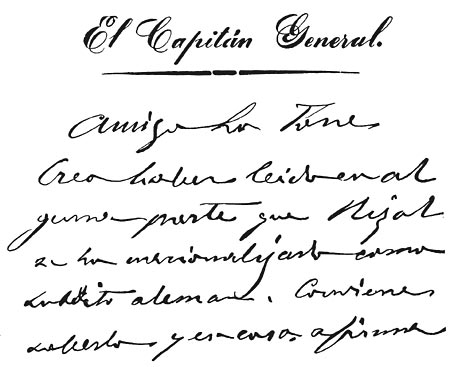 El Capitán General.
Amigo La Torre
Creo haber leido en al
guna parte que Rizal
se ha nacionalizado como
subdito aleman. Conviene
saberlo y en caso afirma